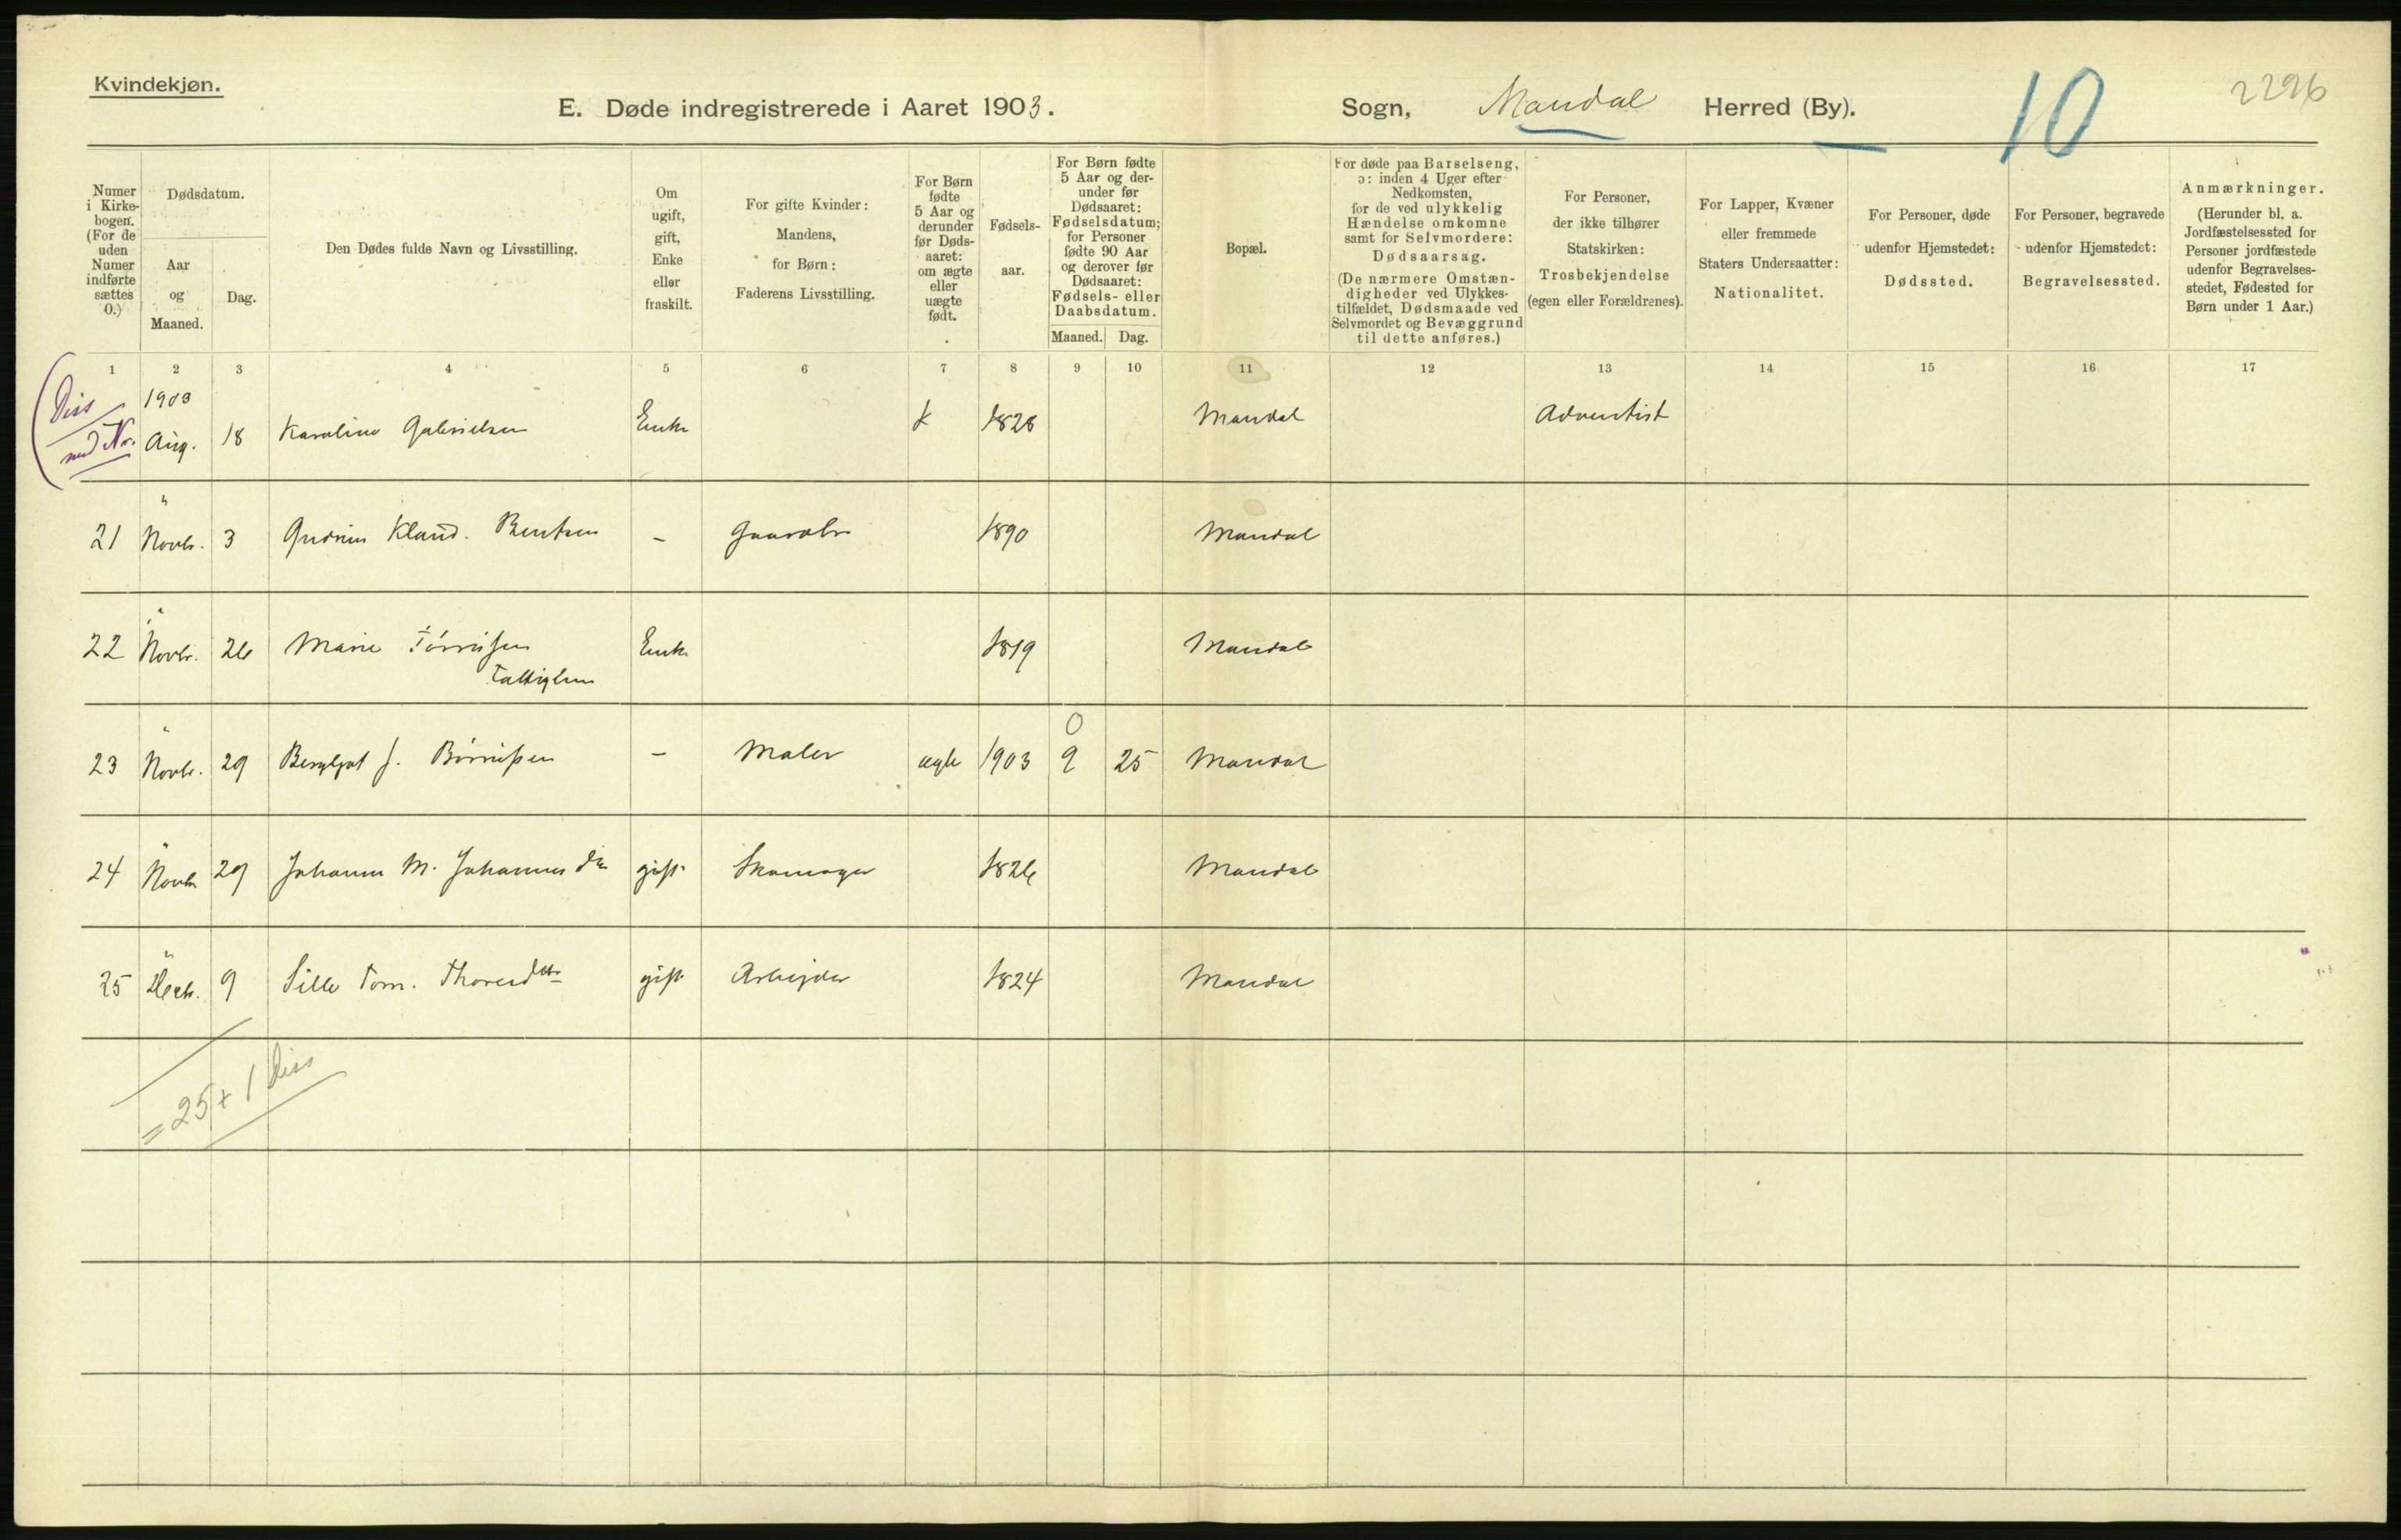 Kvindekjøn.
E. Døde indregistrerede i Aaret 1903.
Sogn, Mandal Herred (By).
10
2296
Numer i Kirke-bogen. (For de uden Numer indførte sættes 0.)
Dødsdatum.
Aar og Maaned.
Dag.
Den Dødes fulde Navn og Livsstilling.
Om ugift, gift, Enke eller fraskilt.
For gifte Kvinder: Mandens, for Børn: Faderens Livsstilling.
For Børn fødte 5 Aar og derunder før Døds-aaret: om ægte eller uægte født.
Fødsels-aar.
For Børn fødte 5 Aar og der-under før Dødsaaret: Fødselsdatum; for Personer fødte 90 Aar og derover før Dødsaaret: Fødsels- eller Daabsdatum.
Maaned. Dag.
Bopæl.
For døde paa Barselseng, ɔ: inden 4 Uger efter Nedkomsten, for de ved ulykkelig Hændelse omkomne samt for Selvmordere: Dødsaarsag. (De nærmere Omstæn-digheder ved Ulykkes-tilfældet, Dødsmaade ved Selvmordet og Bevæggrund til dette anføres.)
For Personer, der ikke tilhører Statskirken: Trosbekjendelse (egen eller Forældrenes).
For Lapper, Kvæner eller fremmede Staters Undersaatter: Nationalitet.
For Personer, døde udenfor Hjemstedet: Dødssted.
For Personer, begravede udenfor Hjemstedet: Begravelsessted.
Anmærkninger. (Herunder bl. a. Jordfæstelsessted for Personer jordfæstede udenfor Begravelses-stedet, Fødested for Børn under 1 Aar.)
1 2 3 4 5 6 7 8 9 10 11 12 13 14 15 16 17
Diss
1903
Aug. 18 Karoline Gabrielsen Enke 1828 Mandal Adventist
"
21 Novbr. 3 Gudrun Kland. Bentsen - 1890 Mandal
"
22 Novbr. 26 Marie Tørrissen Enke 1819 Mandal
Fattiglem
" 0
23 Novbr. 29 Bergljot J. Børruesen - Maler ægte 1903 9 25 Mandal
"
24 Novbr 29 Johanne M. Johannesdtr gift Skomager 1826 Mandal
"
25 Decbr. 9 Sille Tom. Thoresdtr gift Arbejder 1824 Mandal
= 25 + 1 Diss